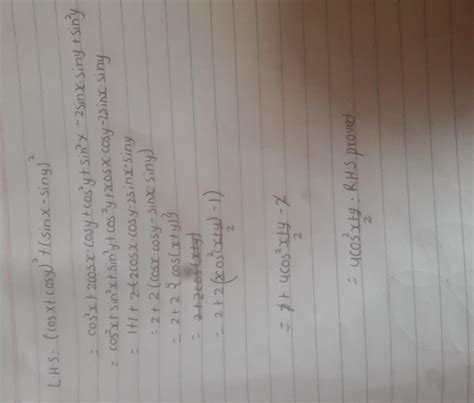 LHS: (cosx+cosy)² + (sinx-siny)²
= cos²x + 2cosx·cosy + cos²y + sin²x - 2sinx·siny + sin²y
= cos²x + sin²x + sin²y + cos²y + 2cosx cosy - 2sinx·siny
= 1+1 + 2cosx cosy - 2sinx·siny
= 2+2(cosx cosy - sinx·siny)
= 2+2{cos(x+y)}
= 2+2cos(x+y)
= 2+2(2cos²(x+y)/2 - 1)
= 2 + 4cos²x+y/2 - 2
= 4cos²x+y/2 · RHS proved